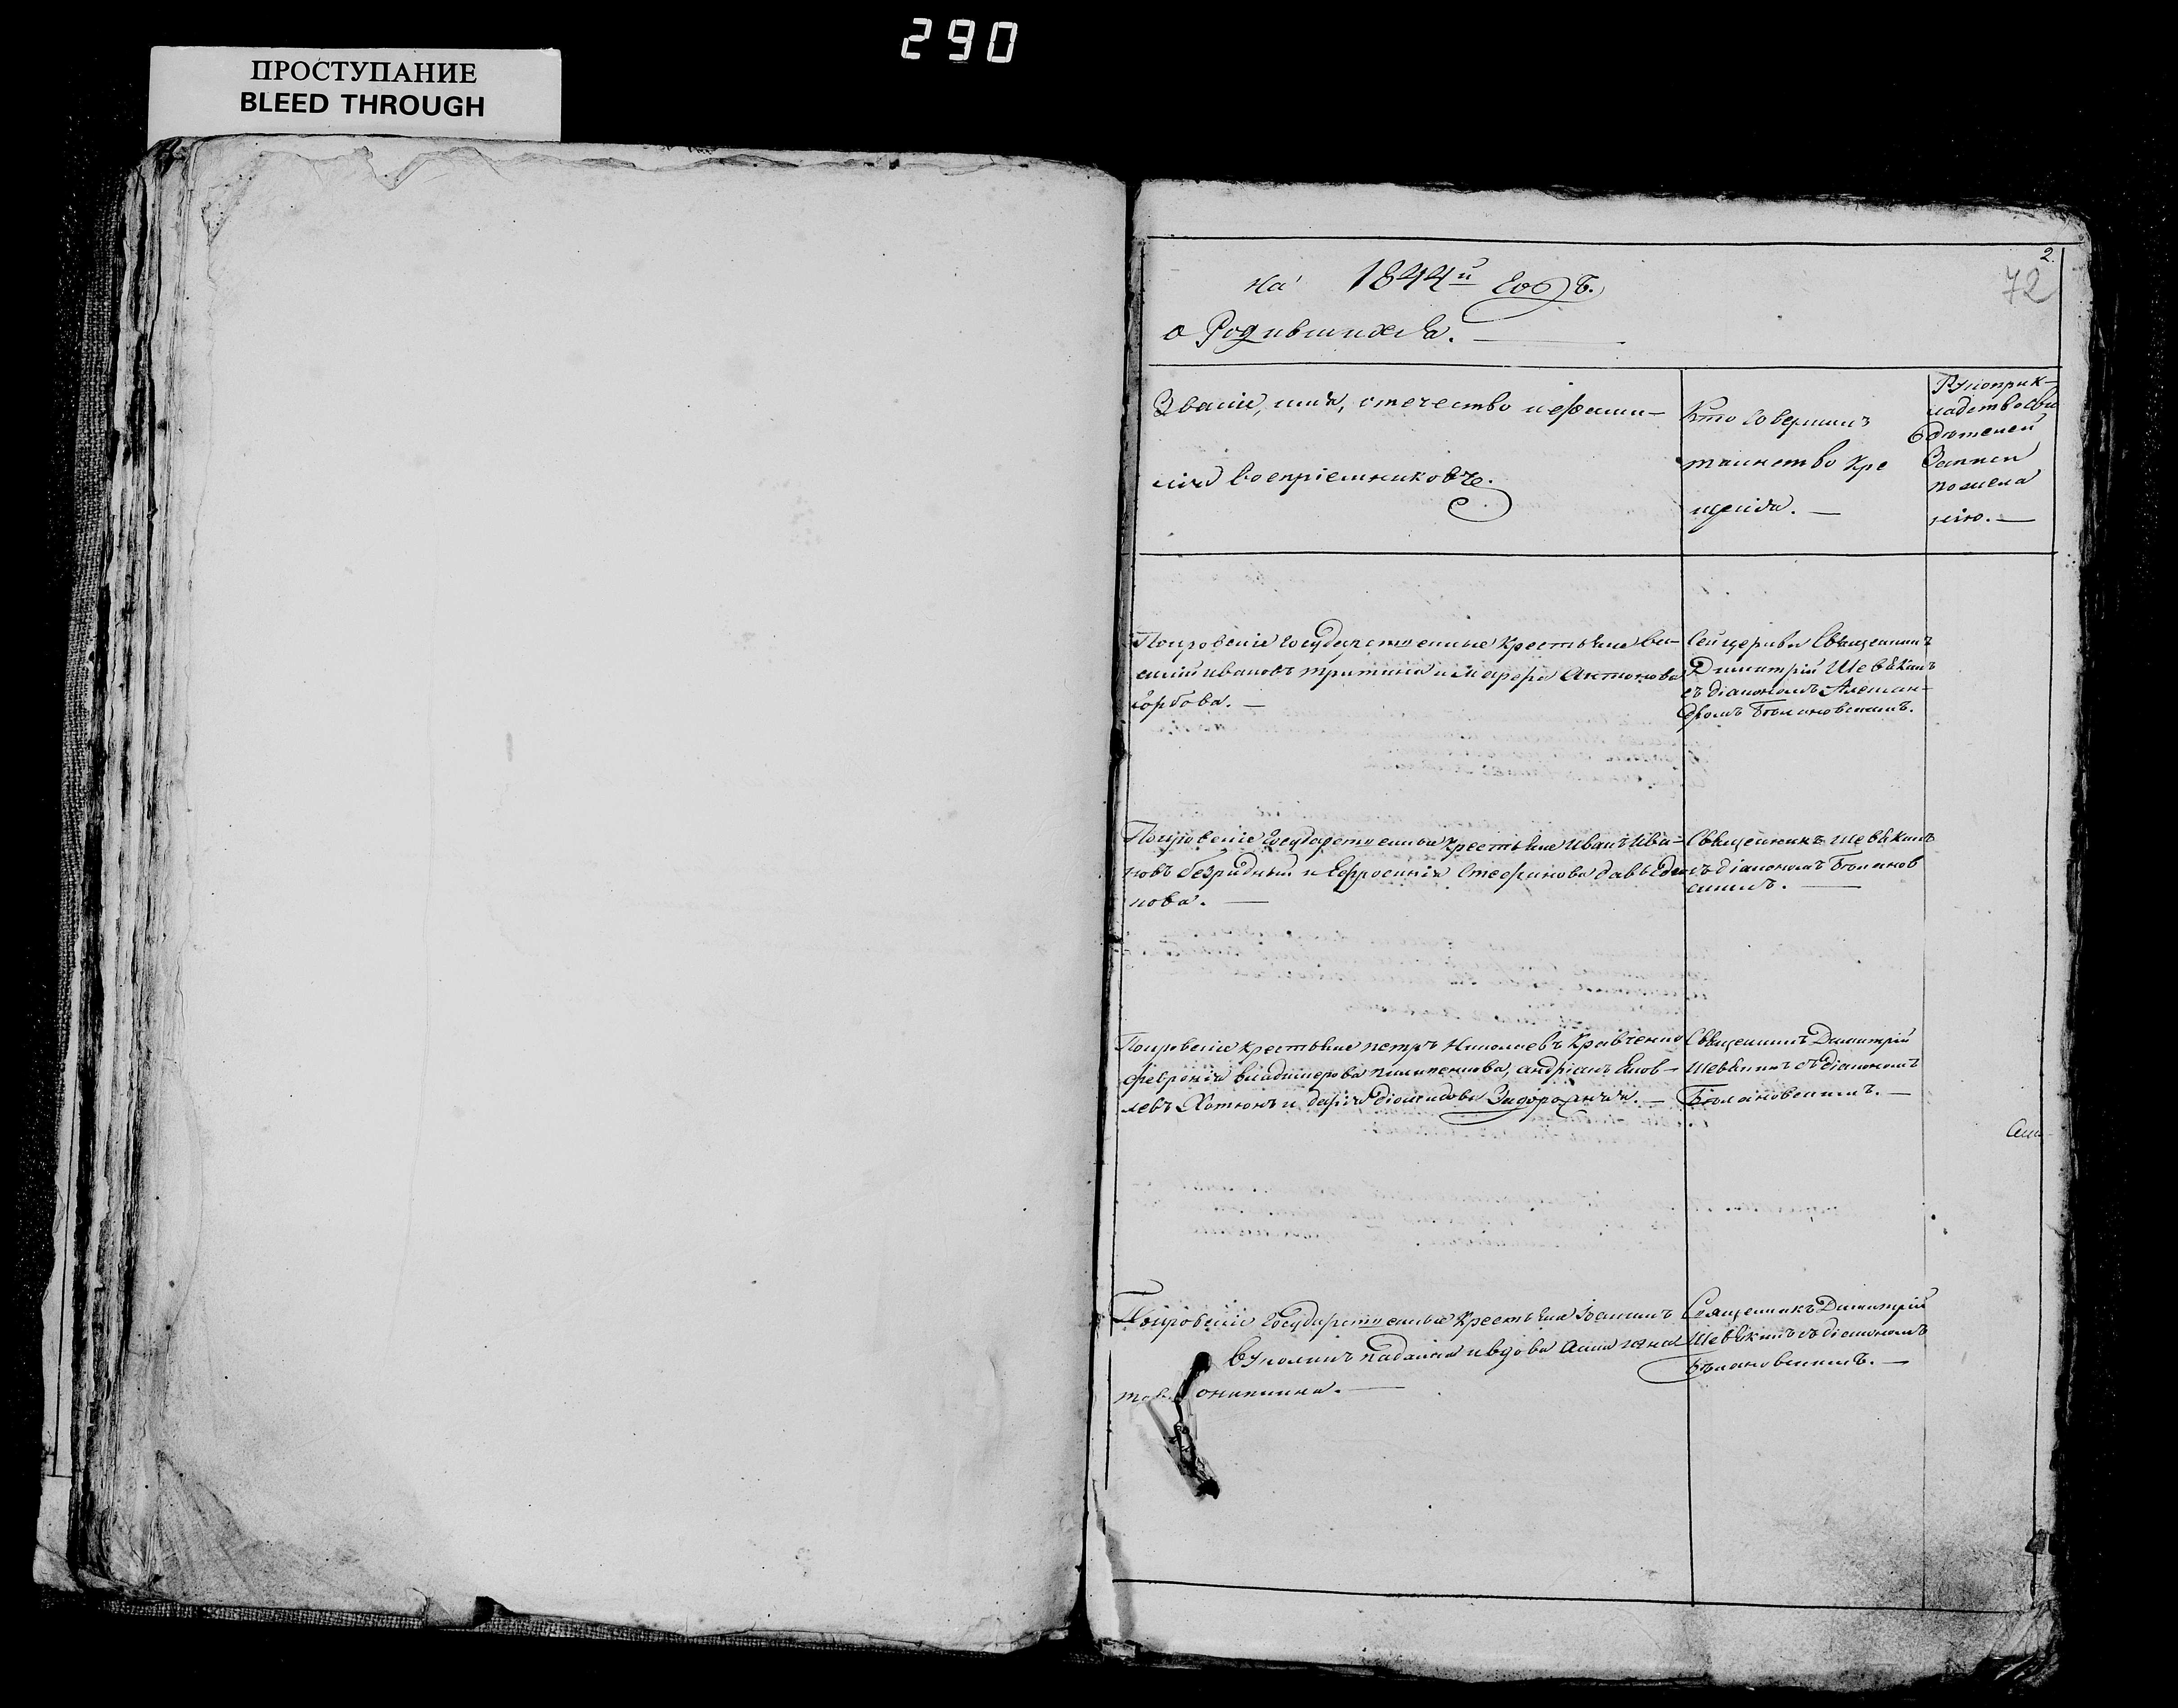 290
ПРОСТУПАНИЕ
BLEED THROUGH
2.
72
на 1844й годъ.
о Родившихся.
Званіе, имя, отечество и фами-
лія воспріемниковъ.
Кто совершилъ
таинство кре
щенія. —
Рукоприк-
ладство сви
дѣтелей
записи
по жела
нію. —
Покровскіе государственные крестьяне ва-
силій ивановъ притика и Марфа Антонова
горбова. —
Сей церкви Священникъ
Димитрій Шевѣкинъ
съ діакономъ Алексан-
дромъ Бѣлановскимъ.
Покровскіе государственные крестьяне иванъ ива-
новъ безридный и Ефросинія Стефанова давыде
нкова. —
Священникъ шевѣкинъ
съ діакономъ Бѣланов
скимъ. —
Покровскіе крестьяне петръ Николаевъ Кравченко
февронія владимерова пилипенкова, андріанъ Яков-
левъ Хотюнъ и дарія діомидова Задорожняя. —
Священникъ Димитрій
Шевѣкинъ съ діакономъ
Бѣлановскимъ. —
Покровскіе государственные крестьяне
вдова Анна игна
това
Священникъ Димитрій
Шевѣкинъ съ діакономъ
Бѣлановскимъ. —